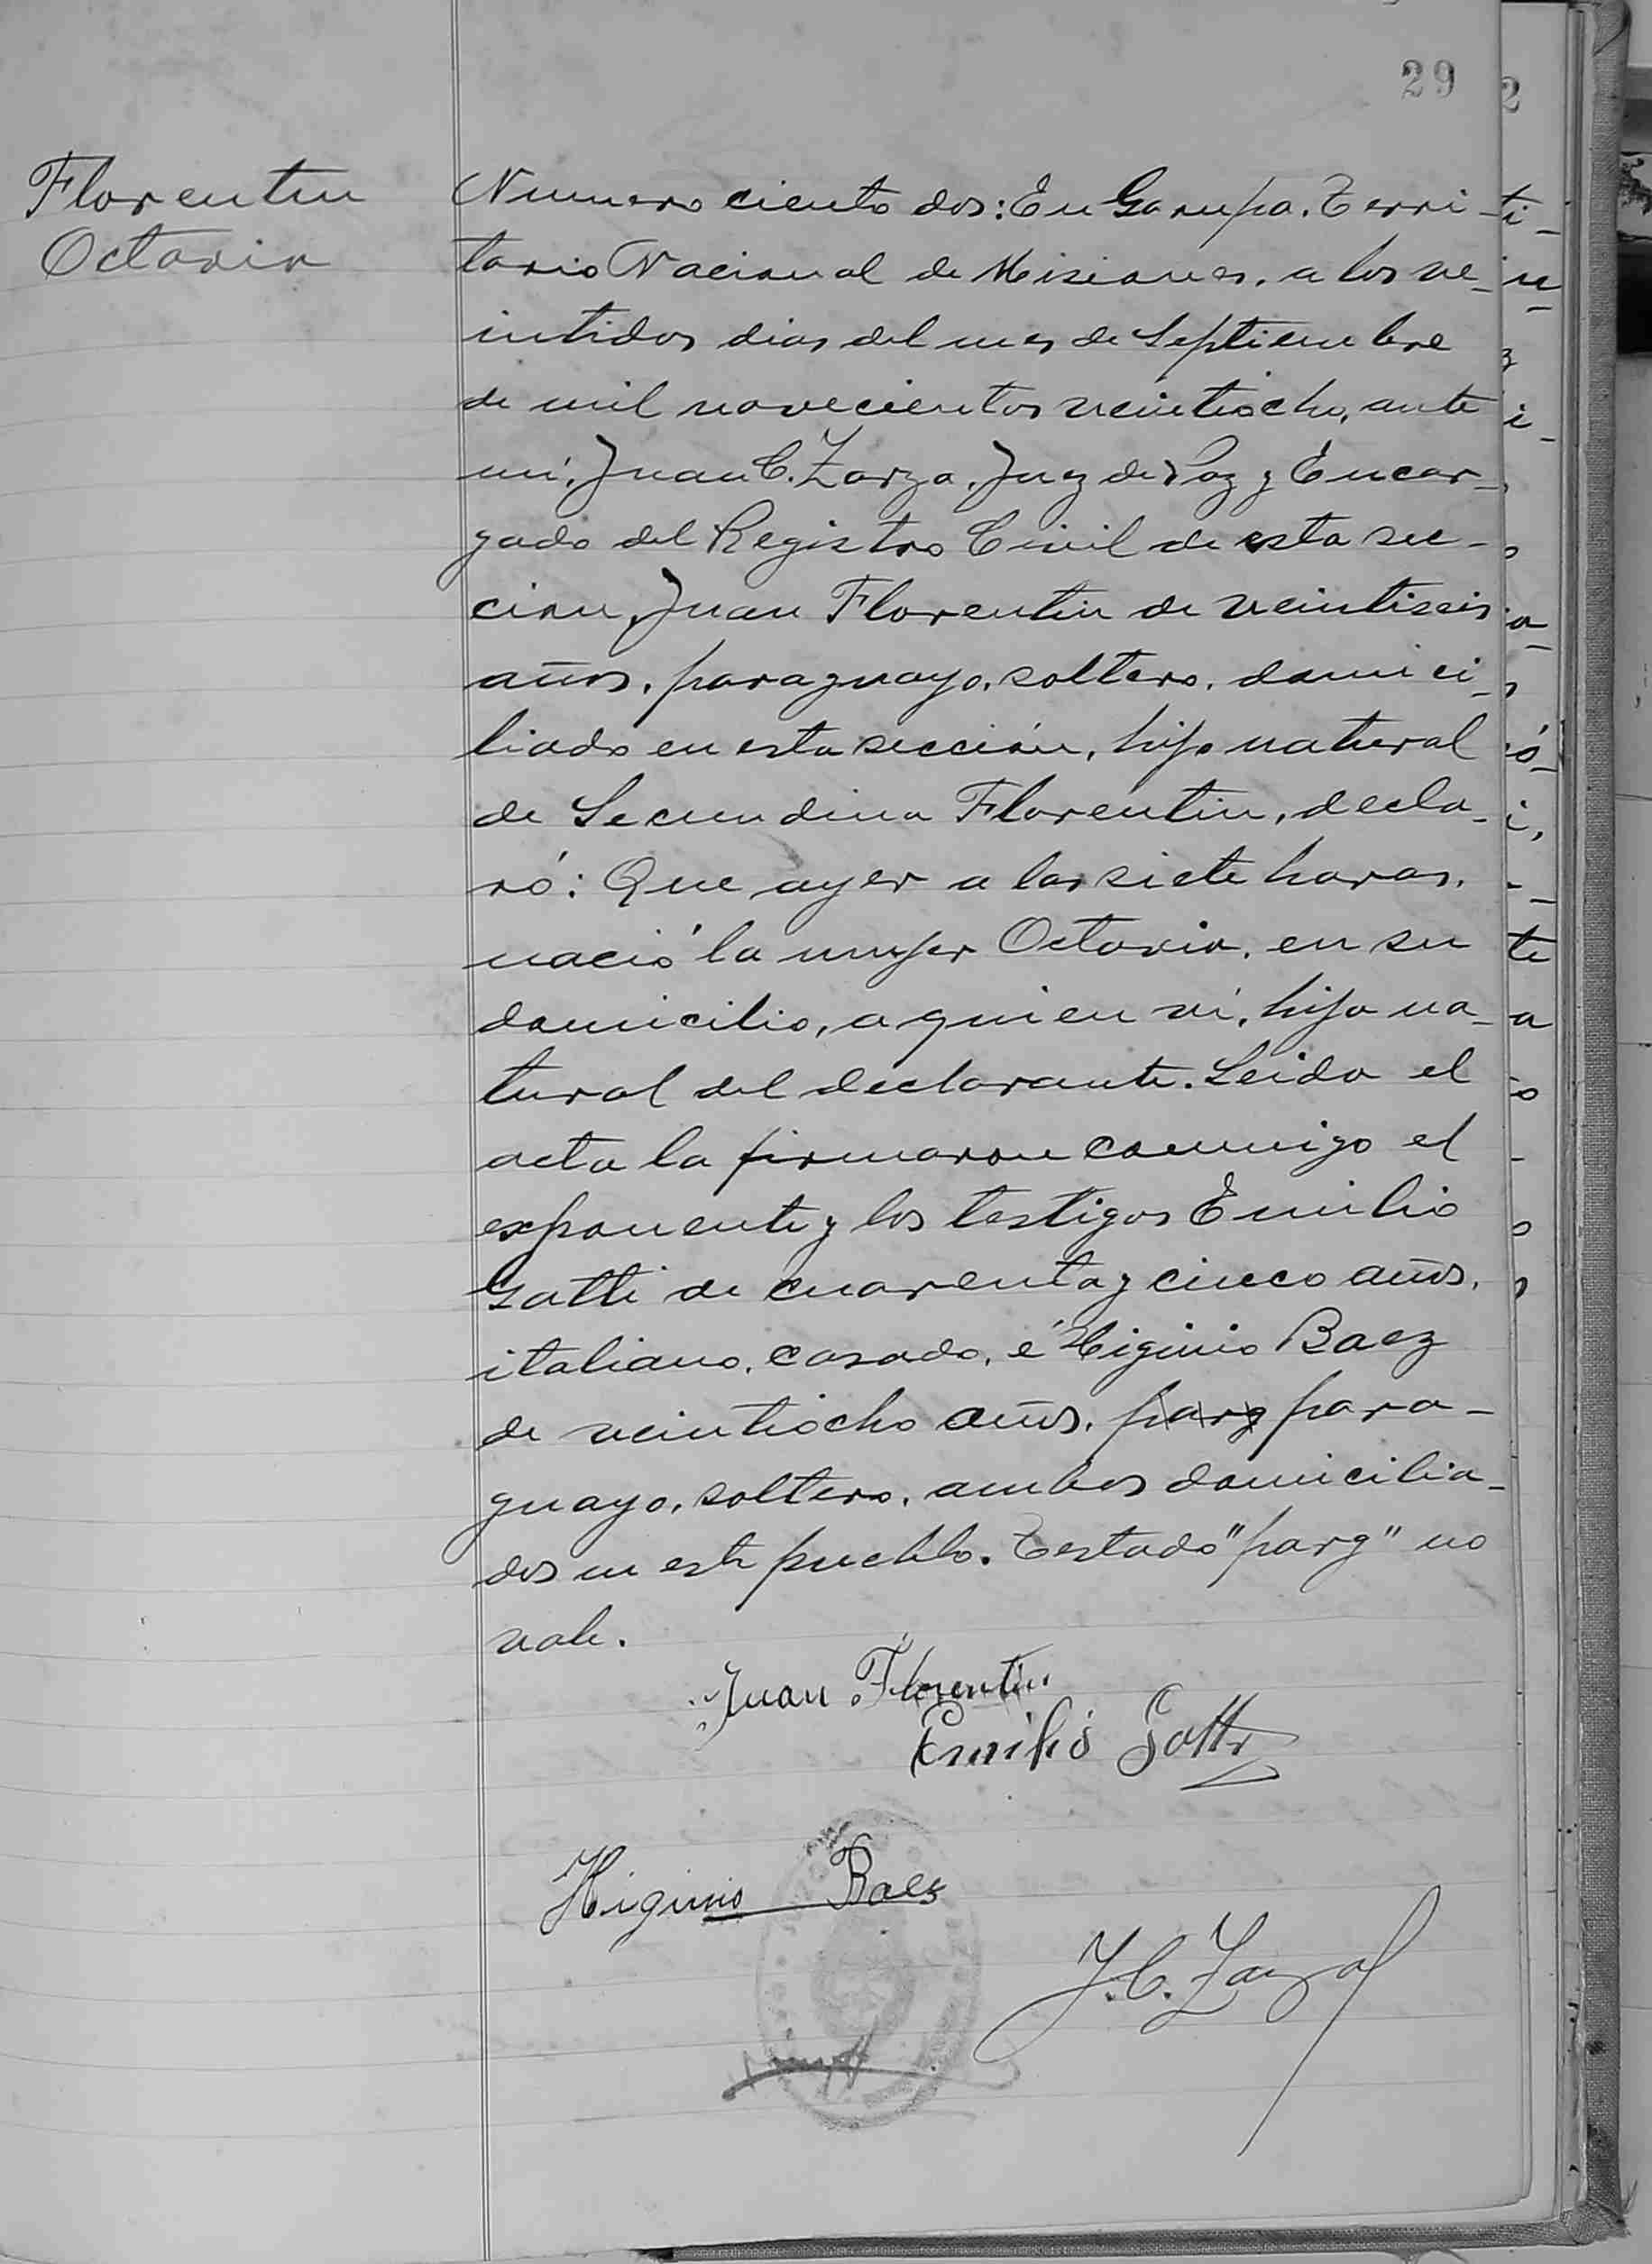 29
Florentin
Octavia
Numero ciento dos: En Garupa. Terri-
torio Nacional de Misiones, a los ve-
intidos dias del mes de Septiembre
de mil novecientos veintiocho, ante
mi, Juan C. Zarza, Juez de Paz y Encar-
gado del Registro Civil de esta sec-
cion, Juan Florentin de veintiseis
años, paraguayo, soltero, domici-
liado en esta sección, hijo natural
de Secundina Florentin, decla-
ró: Que ayer a las siete horas,
nació la mujer Octavia, en su
domicilio, a quien vi, hija na-
tural del declarante. Leida el
acta la firmaron conmigo el
exponente y los testigos Emilio
Gatti de cuarenta y cinco años,
italiano, casado, é Higinio Baez
de veintiocho años, parg para-
guayo, soltero, ambos domicilia-
dos en este pueblo. Testado "parg" no
vale.
Juan Florentin
Emilio Gatti
Higinio Baez
J. C. Zarza